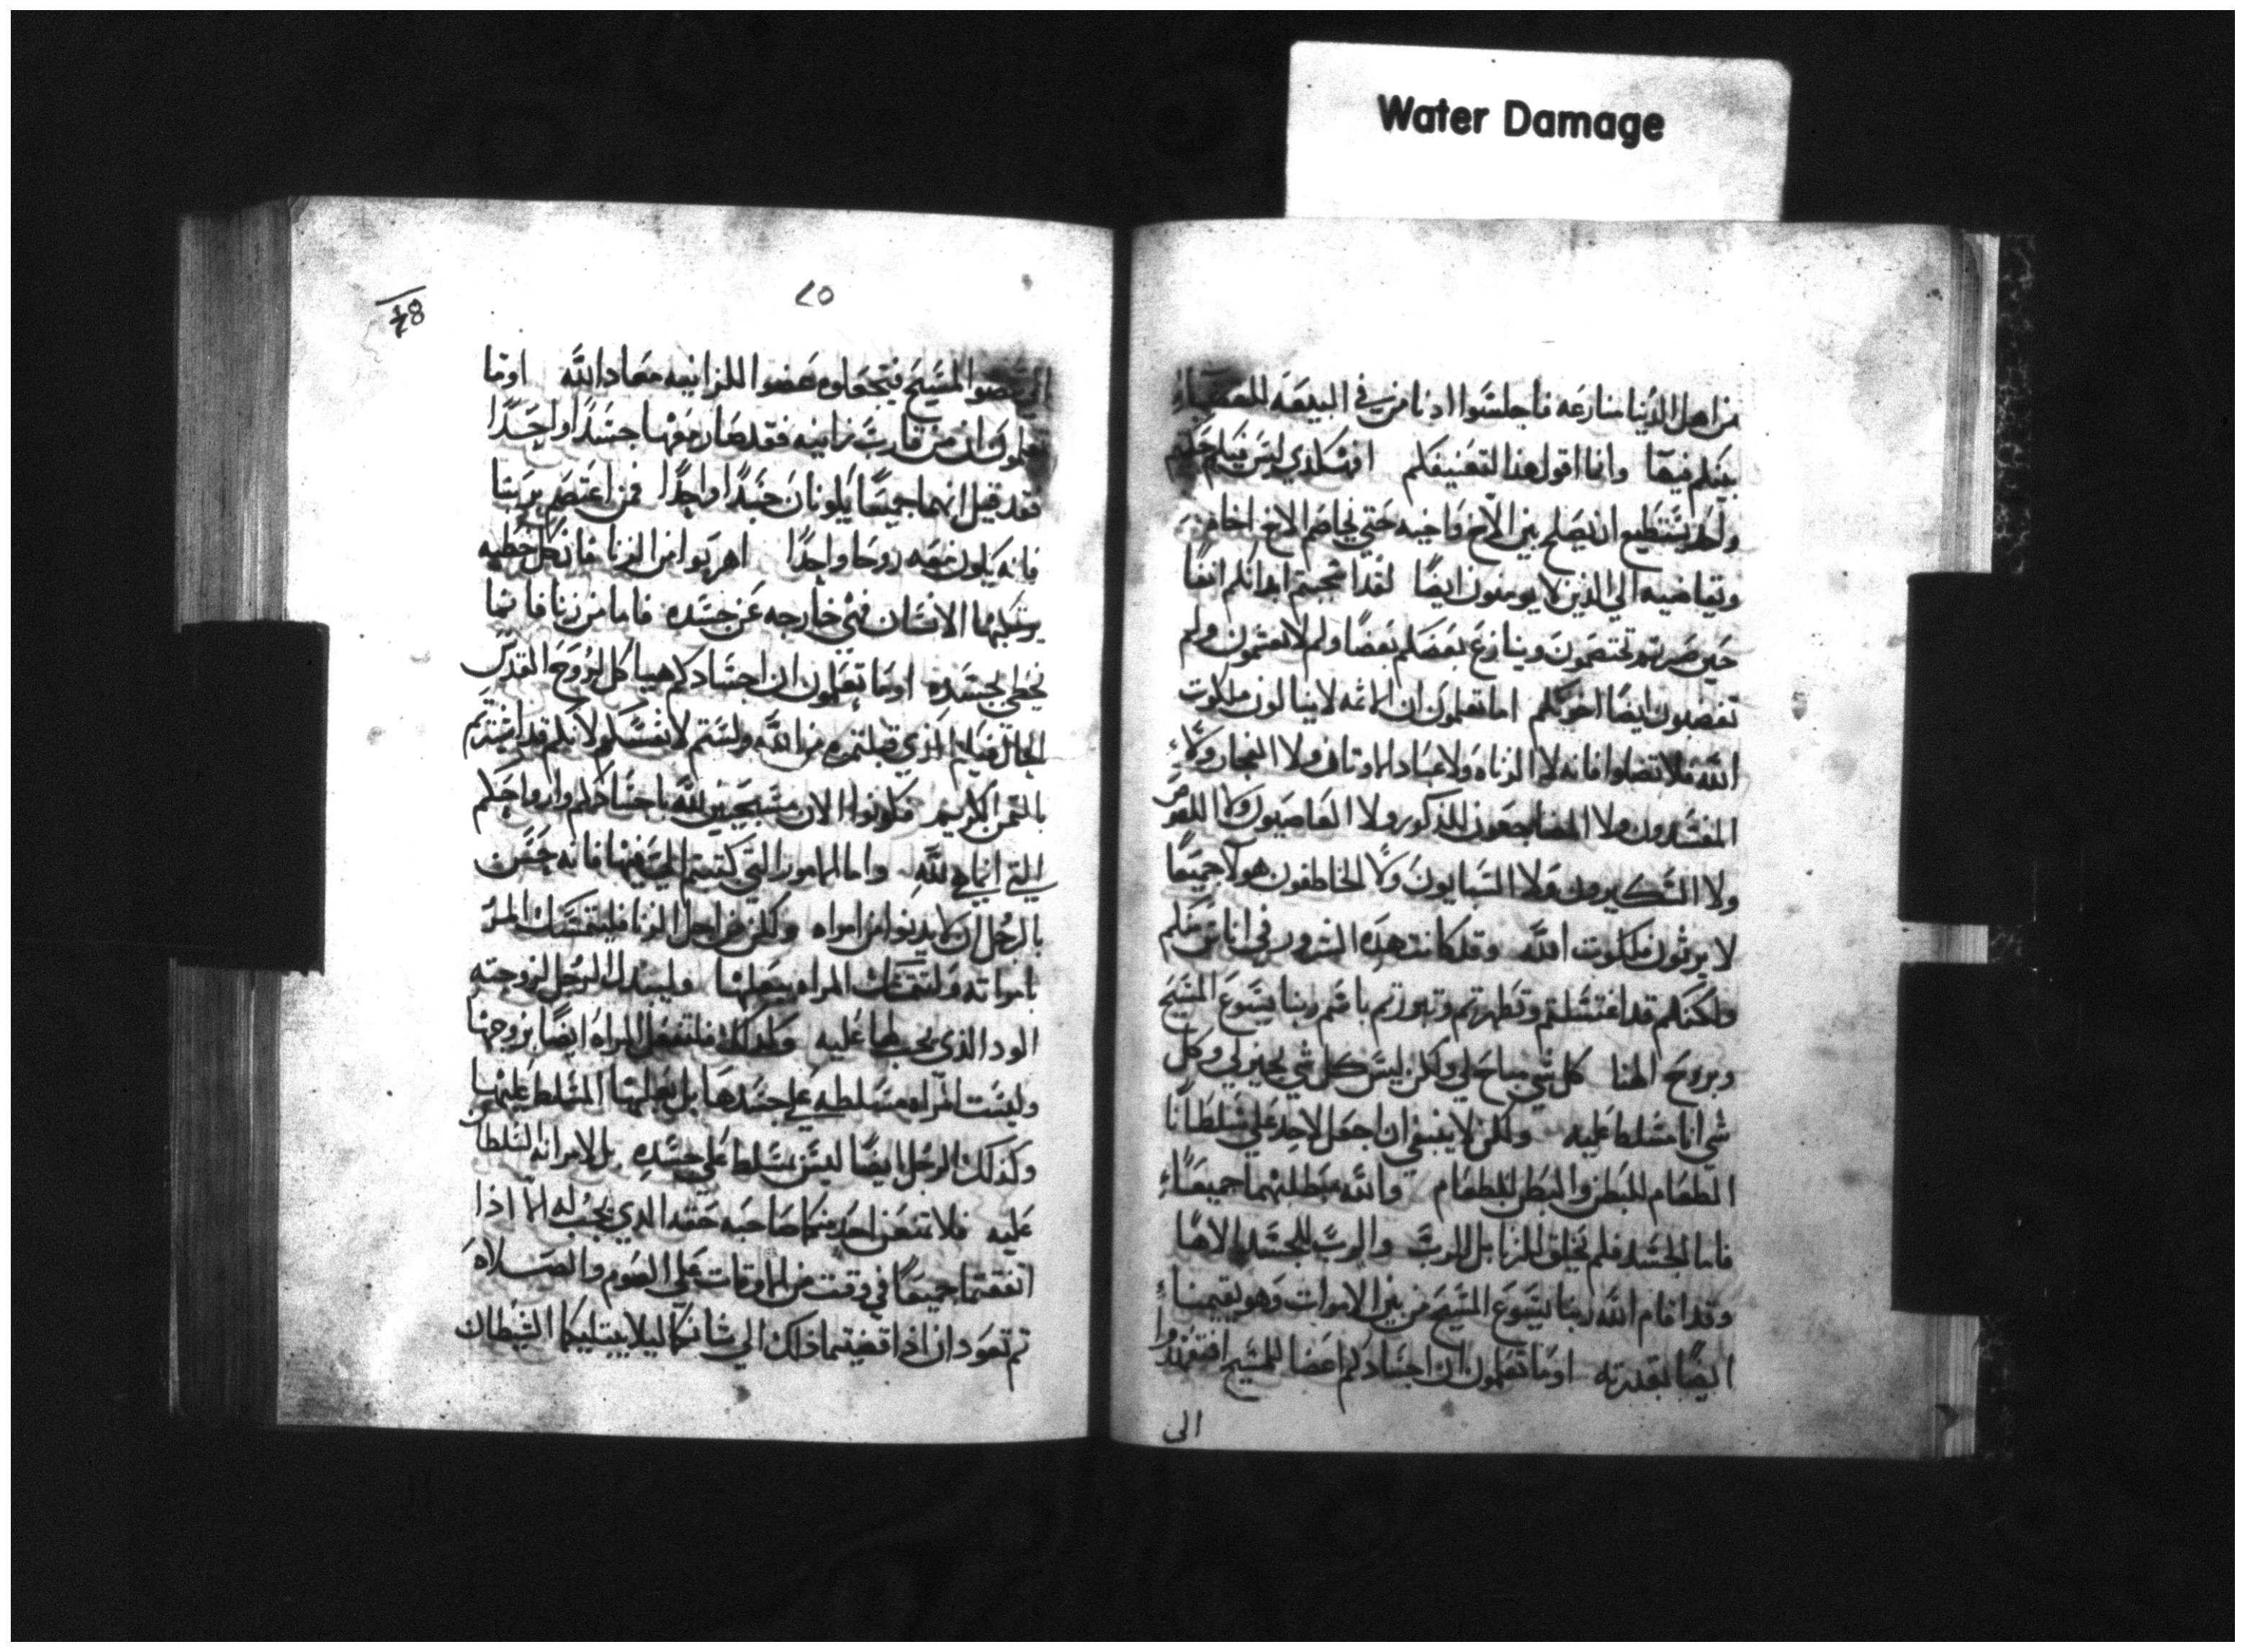 Water Damage
من اهل الدنيا منازعه فاجلسوا ادنا من في البيعه للقضاء
بينكم فيها وانما اقول هذا لتعنيفكم افهكذي ليس فيكم حكيم
واحد يستطيع ان يصلح بين الاخ واخيه حتي يخاصم الاخ اخاه
ويقاضيه الي الذين لا يومنون ايضًا لقد اشجبتم ابدانكم انفًا
حين صرتم تختصمون وينازع بعضكم بعضًا ولم لا تغشمون ولم
تغصبون ايضا اخوتكم اما تعلمون ان الاثمه لا ينالون ملكوت
الله فلا تضلوا فانه لا الزناه ولا عباد الاوتان ولا الفجار ولا
المفسدون ولا المضاجعون للذكور ولا الغاصبون ولا اللصوص
ولا السكيرون ولا السبابون ولا الخاطفون هولا جميعًا
لا يرثون ملكوت الله وقد كانت هذه الشرور في اناس منكم
ولكنكم قد اغتسلتم وتطهرتم وتبررتم باسم ربنا يسوع المسيح
وبروح الهنا كل شي مباح لي ولكن ليس كل شي يخير لي وكل
شي انا مسلط عليه ولكن لا ينبغي ان اجعل لاحد علي سلطانًا
الطعام للبطن والبطن للطعام والله مبطلهما جميعًا
فاما الجسد فلم يخلق للزنا بل للرب والرب للجسد
وقد اقام الله ربنا يسوع المسيح من بين الاموات وهو يقيمنا
ايضًا بقدرته اوما تعلمون ان اجسادكم اعضا للمسيح افتعمدوا
الي
٨٥
الي عضو المسيح فتجعلوه عضوا للزانيه معاد الله اوما
تعلمون ان من قارب زانيه فقد صار معها جسدًا واحدًا
فقد قيل انهما جميعًا يكونان جسدًا واحدًا فمن اعتصم بربنا
فانه يكون معه روحًا واحدًا اهربوا من الزنا فان كل خطيه
يرتكبها الانسان فهي خارجه عن جسده فاما من زنا فانما
يخطي بجسده اوما تعلمون ان اجسادكم هياكل لروح القدس
الحال فيكم الذي قبلتموه من الله ولستم لانفسكم لانكم قد اشتريتم
بالثمن الكريم فكونوا الان مسبحين لله باجسادكم وارواحكم
التي انما هي لله واما الامور التي كتبتم الي فيها فانه حسن
بالرجل ان لا يدنوا من امراه ولكن من اجل الزنا فليتمسك المر
بامراته ولتتمسك المراه ببعلها وليبدل الرجل لزوجته
الود الذي يجب لها عليه وكذلك فلتفعل المراه ايضًا بزوجها
وليست المراه مسلطه علي جسدها بل بعلها المسلط عليها
وكذلك الرجل ايضًا ليس بمسلط علي جسده بل لامراته السلطان
عليه فلا تمنعن احد منكما صاحبه حقه الدي يجب له الا اذا
اتفقتما جميعًا في وقت من الاوقات علي الصوم والصلاه
تم تعودان اذا قضيتما ذلك الي شانكما ليلا يبتليكما الشيطان